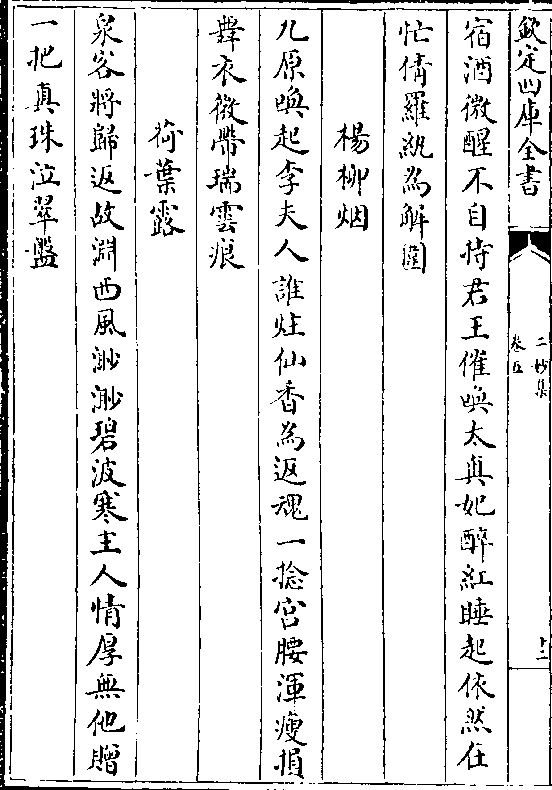 欽定四庫全書
二妙集
卷五
宿酒微醒不自恃君王催喚太真妃醉紅睡起依然在
忙倩羅紈為解圍
楊柳烟
九原喚起李夫人誰炷仙香為返魂一捻宮腰渾瘦損
舞衣微帶瑞雲痕
荷葉露
泉客將歸返故淵西風渺渺碧波寒主人情厚無他贈
一把真珠泣翠盤